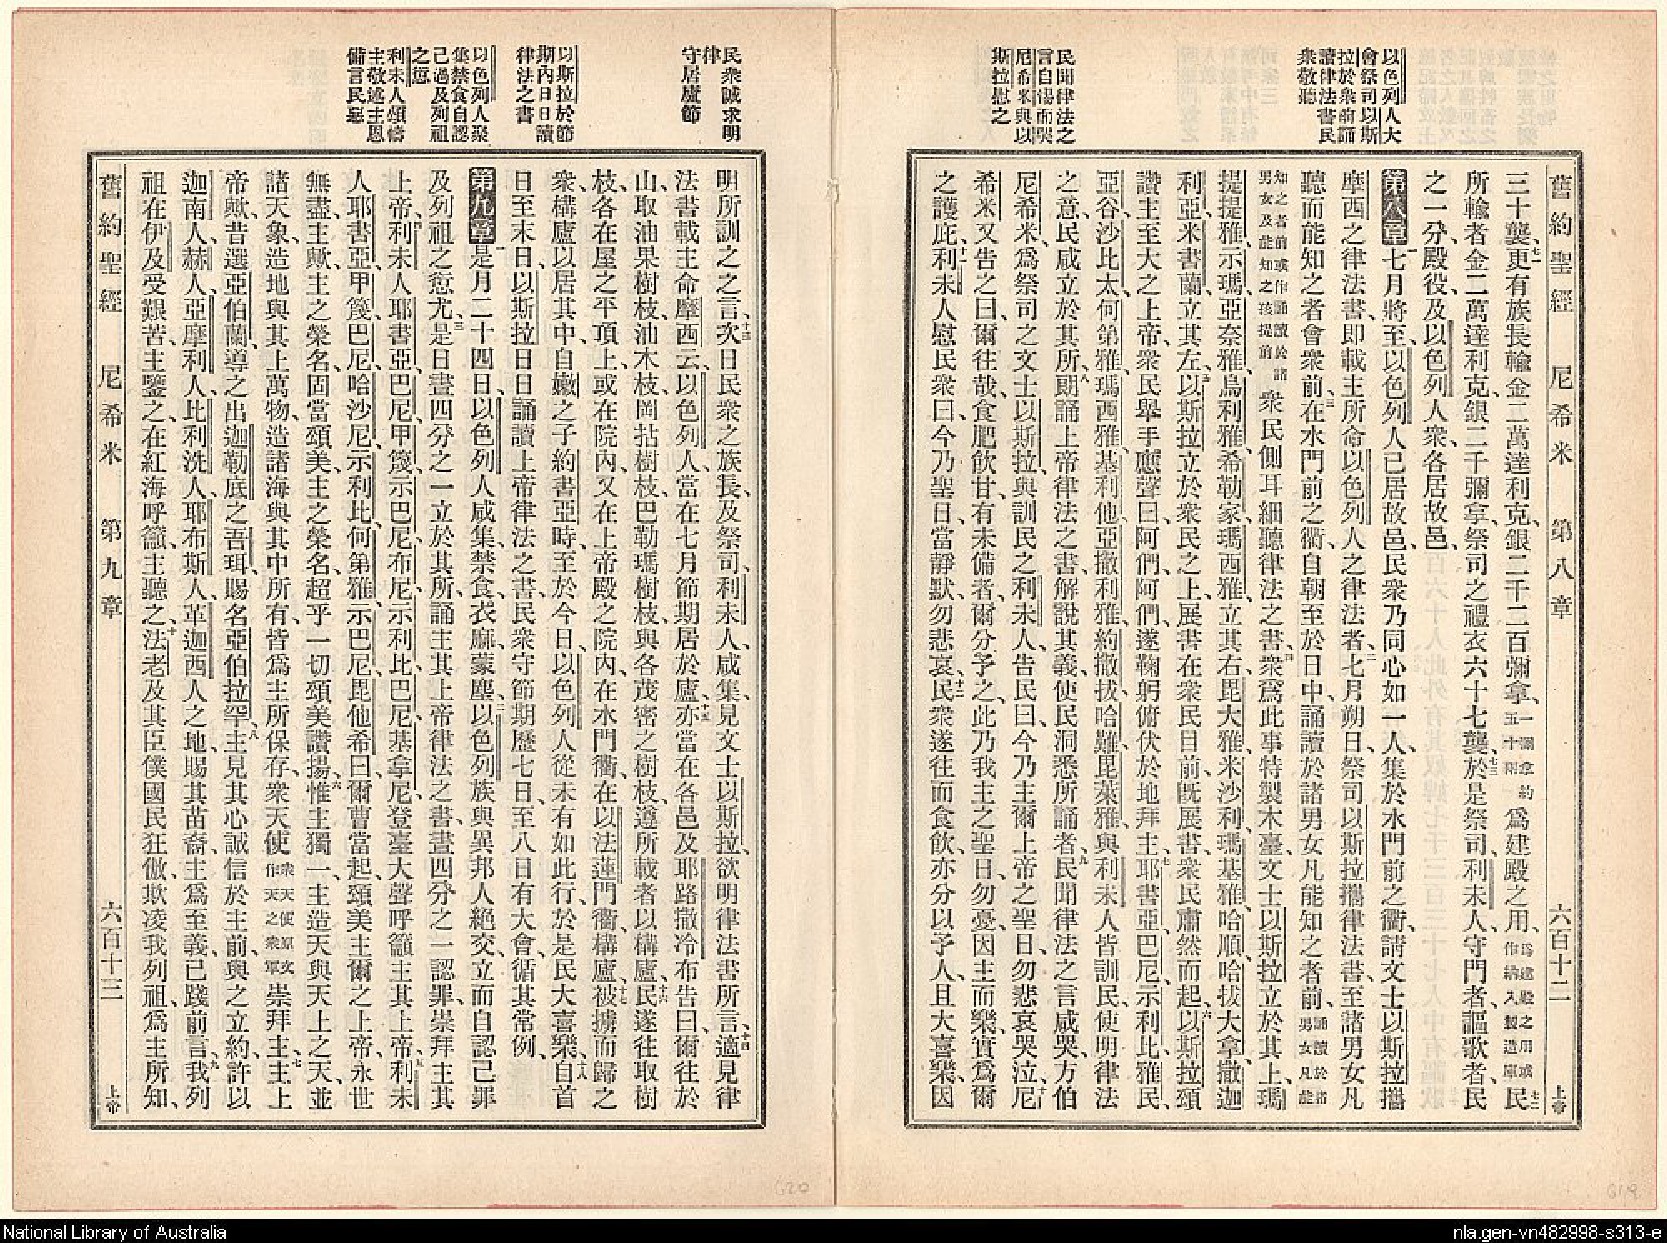 以色列人大
會祭司以斯
拉於衆前誦
讀律法書民
衆敬聽
民聞律法之
言自傷而哭
尼希米與以
斯拉慰之
舊約聖經 尼希米 第八章 六百十二 上帝
三十襲、更有族長輸金二萬達利克、銀二千二百彌拿、一彌拿約五十兩爲建殿之用、爲建殿之用或作納入製造庫民
所輸者金二萬達利克、銀二千彌拿、祭司之禮衣六十七襲、於是祭司利未人、守門者、謳歌者、民
之一分、殿役、及以色列人衆、各居故邑、
第八章七月將至、以色列人已居故邑、民衆乃同心如一人、集於水門前之衢、請文士以斯拉、攜
摩西之律法書、卽載主所命以色列人之律法者、七月朔日、祭司以斯拉攜律法書、至諸男女凡
聽而能知之者會衆前、在水門前之衢、自朝至於日中、誦讀於諸男女凡能知之者前、誦讀於諸男女凡能
知之者前或作誦讀於諸男女及能知之孩提前衆民側耳細聽律法之書、衆爲此事特製木臺、文士以斯拉立於其上、瑪
提提雅、示瑪、亞奈雅、烏利雅、希勒家、瑪西雅、立其右、毘大雅、米沙利、瑪基雅、哈順、哈拔大拿、撒迦
利亞、米書蘭、立其左、以斯拉立於衆民之上、展書在衆民目前、旣展書、衆民肅然而起、以斯拉頌
讚主至大之上帝、衆民舉手應聲曰、阿們阿們、遂鞠躬俯伏於地拜主、耶書亞、巴尼、示利比、雅民、
亞谷、沙比太、何第雅、瑪西雅、基利他、亞撒利雅、約撒拔、哈難、毘萊雅、與利未人、皆訓民、使明律法
之意、民咸立於其所、朗誦上帝律法之書、解說其義、使民洞悉所誦者、民聞律法之言咸哭、方伯
尼希米、爲祭司之文士以斯拉、與訓民之利未人告民曰、今乃主爾上帝之聖日、勿悲哀哭泣、尼
希米又告之曰、爾往哉、食肥飲甘、有未備者、爾分予之、此乃我主之聖日、勿憂、因主而樂、實爲爾
之護庇、利未人慰民衆曰、今乃聖日、當靜默、勿悲哀、民衆遂往而食飲、亦分以予人、且大喜樂、因
民衆誠求明
律
守居廬節
以斯拉於節
期內日日讀
律法之書
以色列人聚
集禁食自認
己過及列祖
之愆
利未人頌讚
主敬述主恩
備言民惡
明所訓之之言、次日民衆之族長、及祭司利未人咸集、見文士以斯拉、欲明律法書所言、適見律
法書載主命摩西云、以色列人當在七月節期居於廬、亦當在各邑及耶路撒冷布告曰、爾往於
山、取油果樹枝、油木枝、岡拈樹枝、巴勒瑪樹枝、與各茂密之樹枝、遵所載者以構廬、民遂往取樹
枝、各在屋之平頂上、或在院內、又在上帝殿之院內、在水門衢、在以法蓮門衢、構廬、被擄而歸之
衆、構廬以居其中、自嫩之子約書亞時、至於今日、以色列人從未有如此行、於是民大喜樂、自首
日至末日、以斯拉日日誦讀上帝律法之書、民衆守節期歷七日、至八日有大會、循其常例、
第九章是月二十四日、以色列人咸集、禁食、衣麻蒙塵、以色列族與異邦人絕交、立而自認己罪
及列祖之愆尤、是日晝四分之一、立於其所、誦主其上帝律法之書、晝四分之一、認罪、崇拜主其
上帝、利未人耶書亞、巴尼、甲篾、示巴尼、布尼、示利比、巴尼、基拿尼、登臺大聲呼籲主其上帝、利未
人耶書亞、甲篾、巴尼、哈沙尼、示利比、何第雅、示巴尼、毘他希曰、爾曹當起、頌美主爾之上帝、永世
無盡、主歟、主之榮名、固當頌美、主之榮名、超乎一切頌美讚揚、惟主獨一、主造天與天上之天、並
諸天象、造地與其上萬物、造諸海與其中所有、皆爲主所保存、衆天使衆天使原文作天之衆軍崇拜主、主上
帝歟、昔選亞伯蘭、導之出迦勒底之吾珥、賜名亞伯拉罕、主見其心誠信於主前、與之立約、許以
迦南人、赫人、亞摩利人、比利洗人、耶布斯人、革迦西人之地、賜其苗裔、主爲至義、已踐前言、我列
祖在伊及受艱苦、主鑒之、在紅海呼籲、主聽之、法老及其臣僕國民、狂傲欺凌我列祖、爲主所知、
舊約聖經 尼希米 第九章 六百十三 上帝
620
619
National Library of Australia
nla.gen-vn482998-s313-e